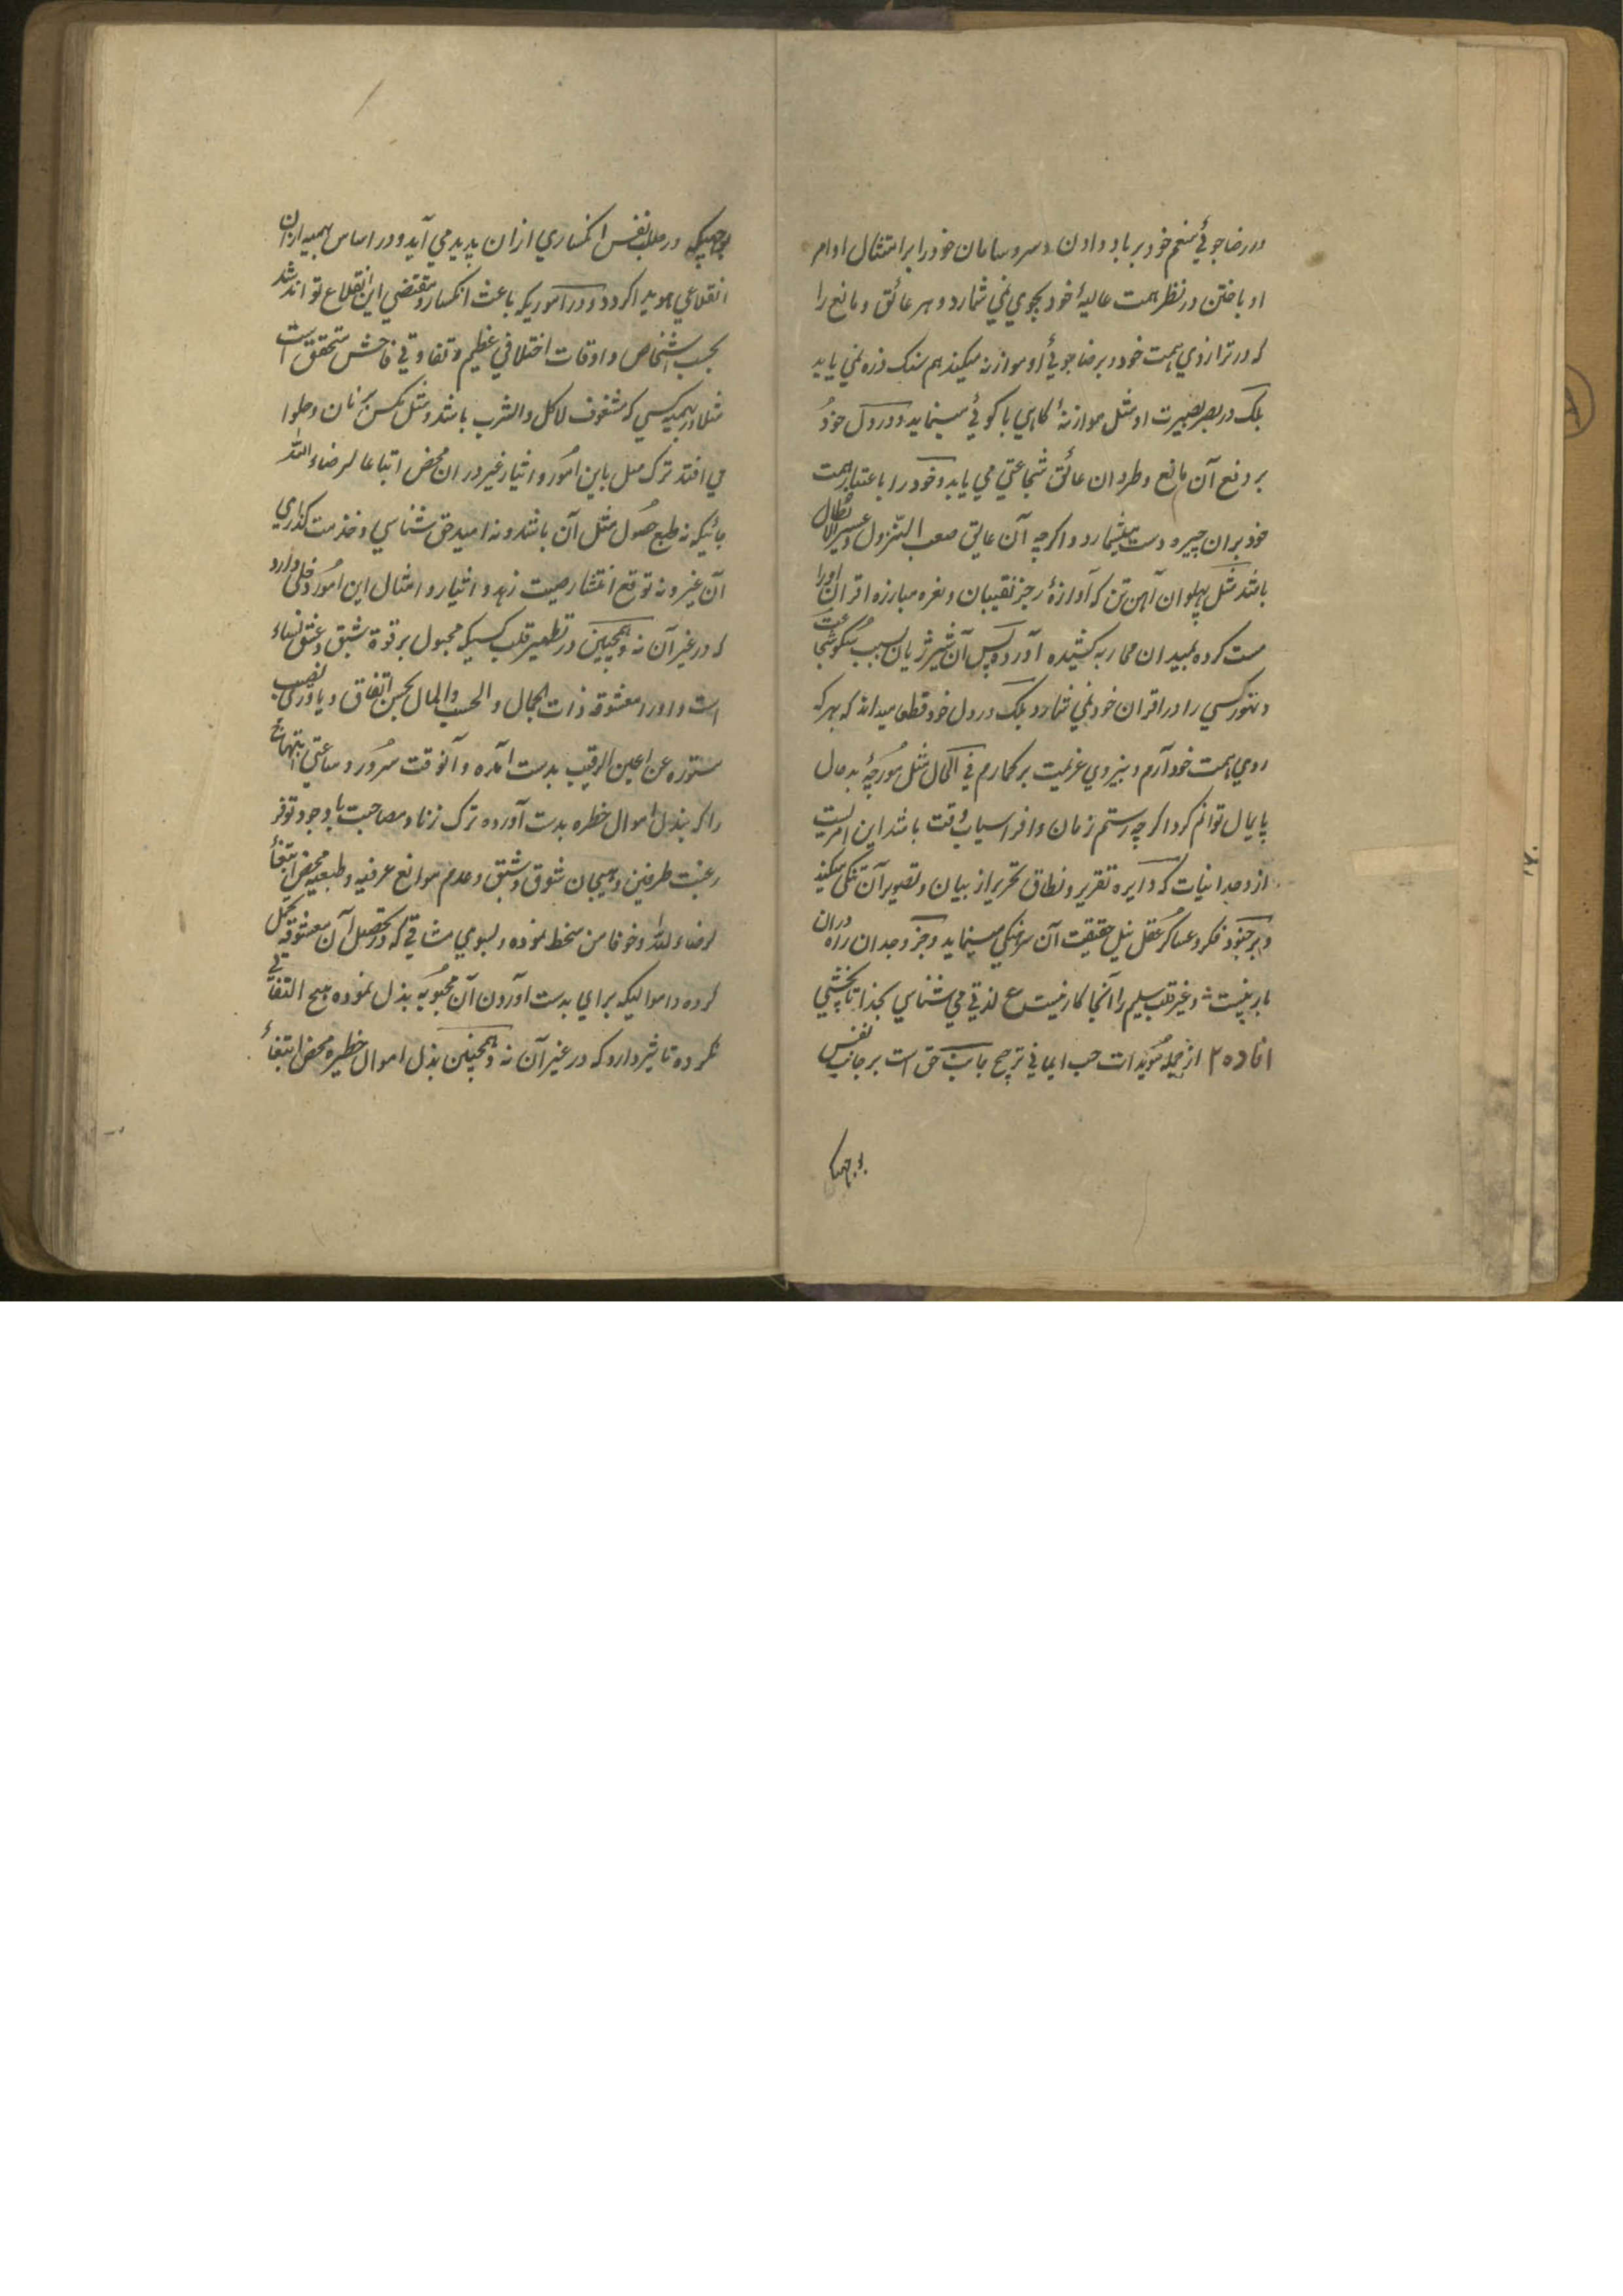 در رضاجوئی منعم خود برباد دادن و سر و سامان خود را بر امتثال اوامر
او باختن در نظر همت عالیهٔ خود بجوی نمی شمارد و هر عائق و مانع را
که در ترازوی همت خود در برضاجوئی او موازنه میکند هم سنک ذره نمی یابد
بلکه در بصر بصیرت او مثل موازنهٔ کاهی با کوئی مینماید و در دل خود
بر دفع آن مانع و طرد ان عائق شجاعتی می یابد و خود را باعتبار همت
خود بران چیره دست میشمارد و اکرچه آن عایق صعب النزول و عسیر الابطال
باشد مثل پهلوان آهن تن که آوازهٔ رجز نقیبان و نعره مبارزه اقران او را
مست کرده بمیدان محاربه کشیده آورده پس آن شیر ژیان بسبب سکر شجاعت
و تهور کسی را در اقران خود نمی شمارد بلکه در دل خود قطعا میداند که بهر که
روی همت خود آرم و نیروی عزیمت بر کمارم فی الحال مثل مورچهٔ بدحال
پایمال توانم کرد اکرچه رستم زمان و افراسیاب وقت باشد این امریست
از وجدانیات که دایره تقریر و نطاق تحریر از بیان و تصویر آن تنکی میکند
و بر جنود فکر و عساکر عقل نیل حقیقت آن سرهنکی مینماید و جز وجدان را دران
بار نیست و غیر قلب سلیم را آنجا کار نیست ع لذتی می شناسی بخدا تا نچشی
افاده ۲ از جمله مؤیدات حب ایمانی ترجیح جانب حق است بر جانب نفس
بوجهیکه
بوجهیکه در طلب نفس انکساری ازان پدید می آید و در اساس بهیمیه ازان
انقلاعی هویدا کردد و در اموریکه باعث انکسار و مقتضی این انقلاع تواند شد
بحسب اشخاص و اوقات اختلافی عظیم و تفاوتی فاحش متحقق است
مثلا در بهیمیه کسی که مشغوف لاکل و الشرب باشد و مثل مکس بر نان و حلوا
می افتد ترک میل باین امور و ایثار غیر دران محض اتباعا لرضاء الله
بانیکه نه طمع حصول مثل آن باشد و نه امید حق شناسی و خدمت کذاری
آن غیر و نه توقع انتشار صیت زهد و ایثار و امثال این امور دخلی دارد
که در غیر آن نه و همچنین در تطهیر قلب کسیکه مجبول بر قوة شبق و عشق نساء
است و او را معشوقه ذات الجمال و الحسب و المال بحسن اتفاق و یاوری نصیب
مستوره عن اعین الرقیب بدست آمده و آنوقت سرور و ساعتی ابتهاج
را که ببذل اموال خطره بدست آورده ترک زنا و مصاحبت با وجود توفر
رغبت طرفین و هیجان شوق و شبق و عدم موانع عرفیه و طبعیه محض ابتغاء
لرضاء الله و خوفا من سخط نموده و بسوی مشاقی که در تحصیل آن معشوقه تحمل
کرده و اموالیکه برای بدست آوردن آن محبوبه بذل نموده هیچ التفاتی
نکرده تاثیر دارد که در غیر آن نه و همچنین بذل اموال خطیره محض ابتغاء